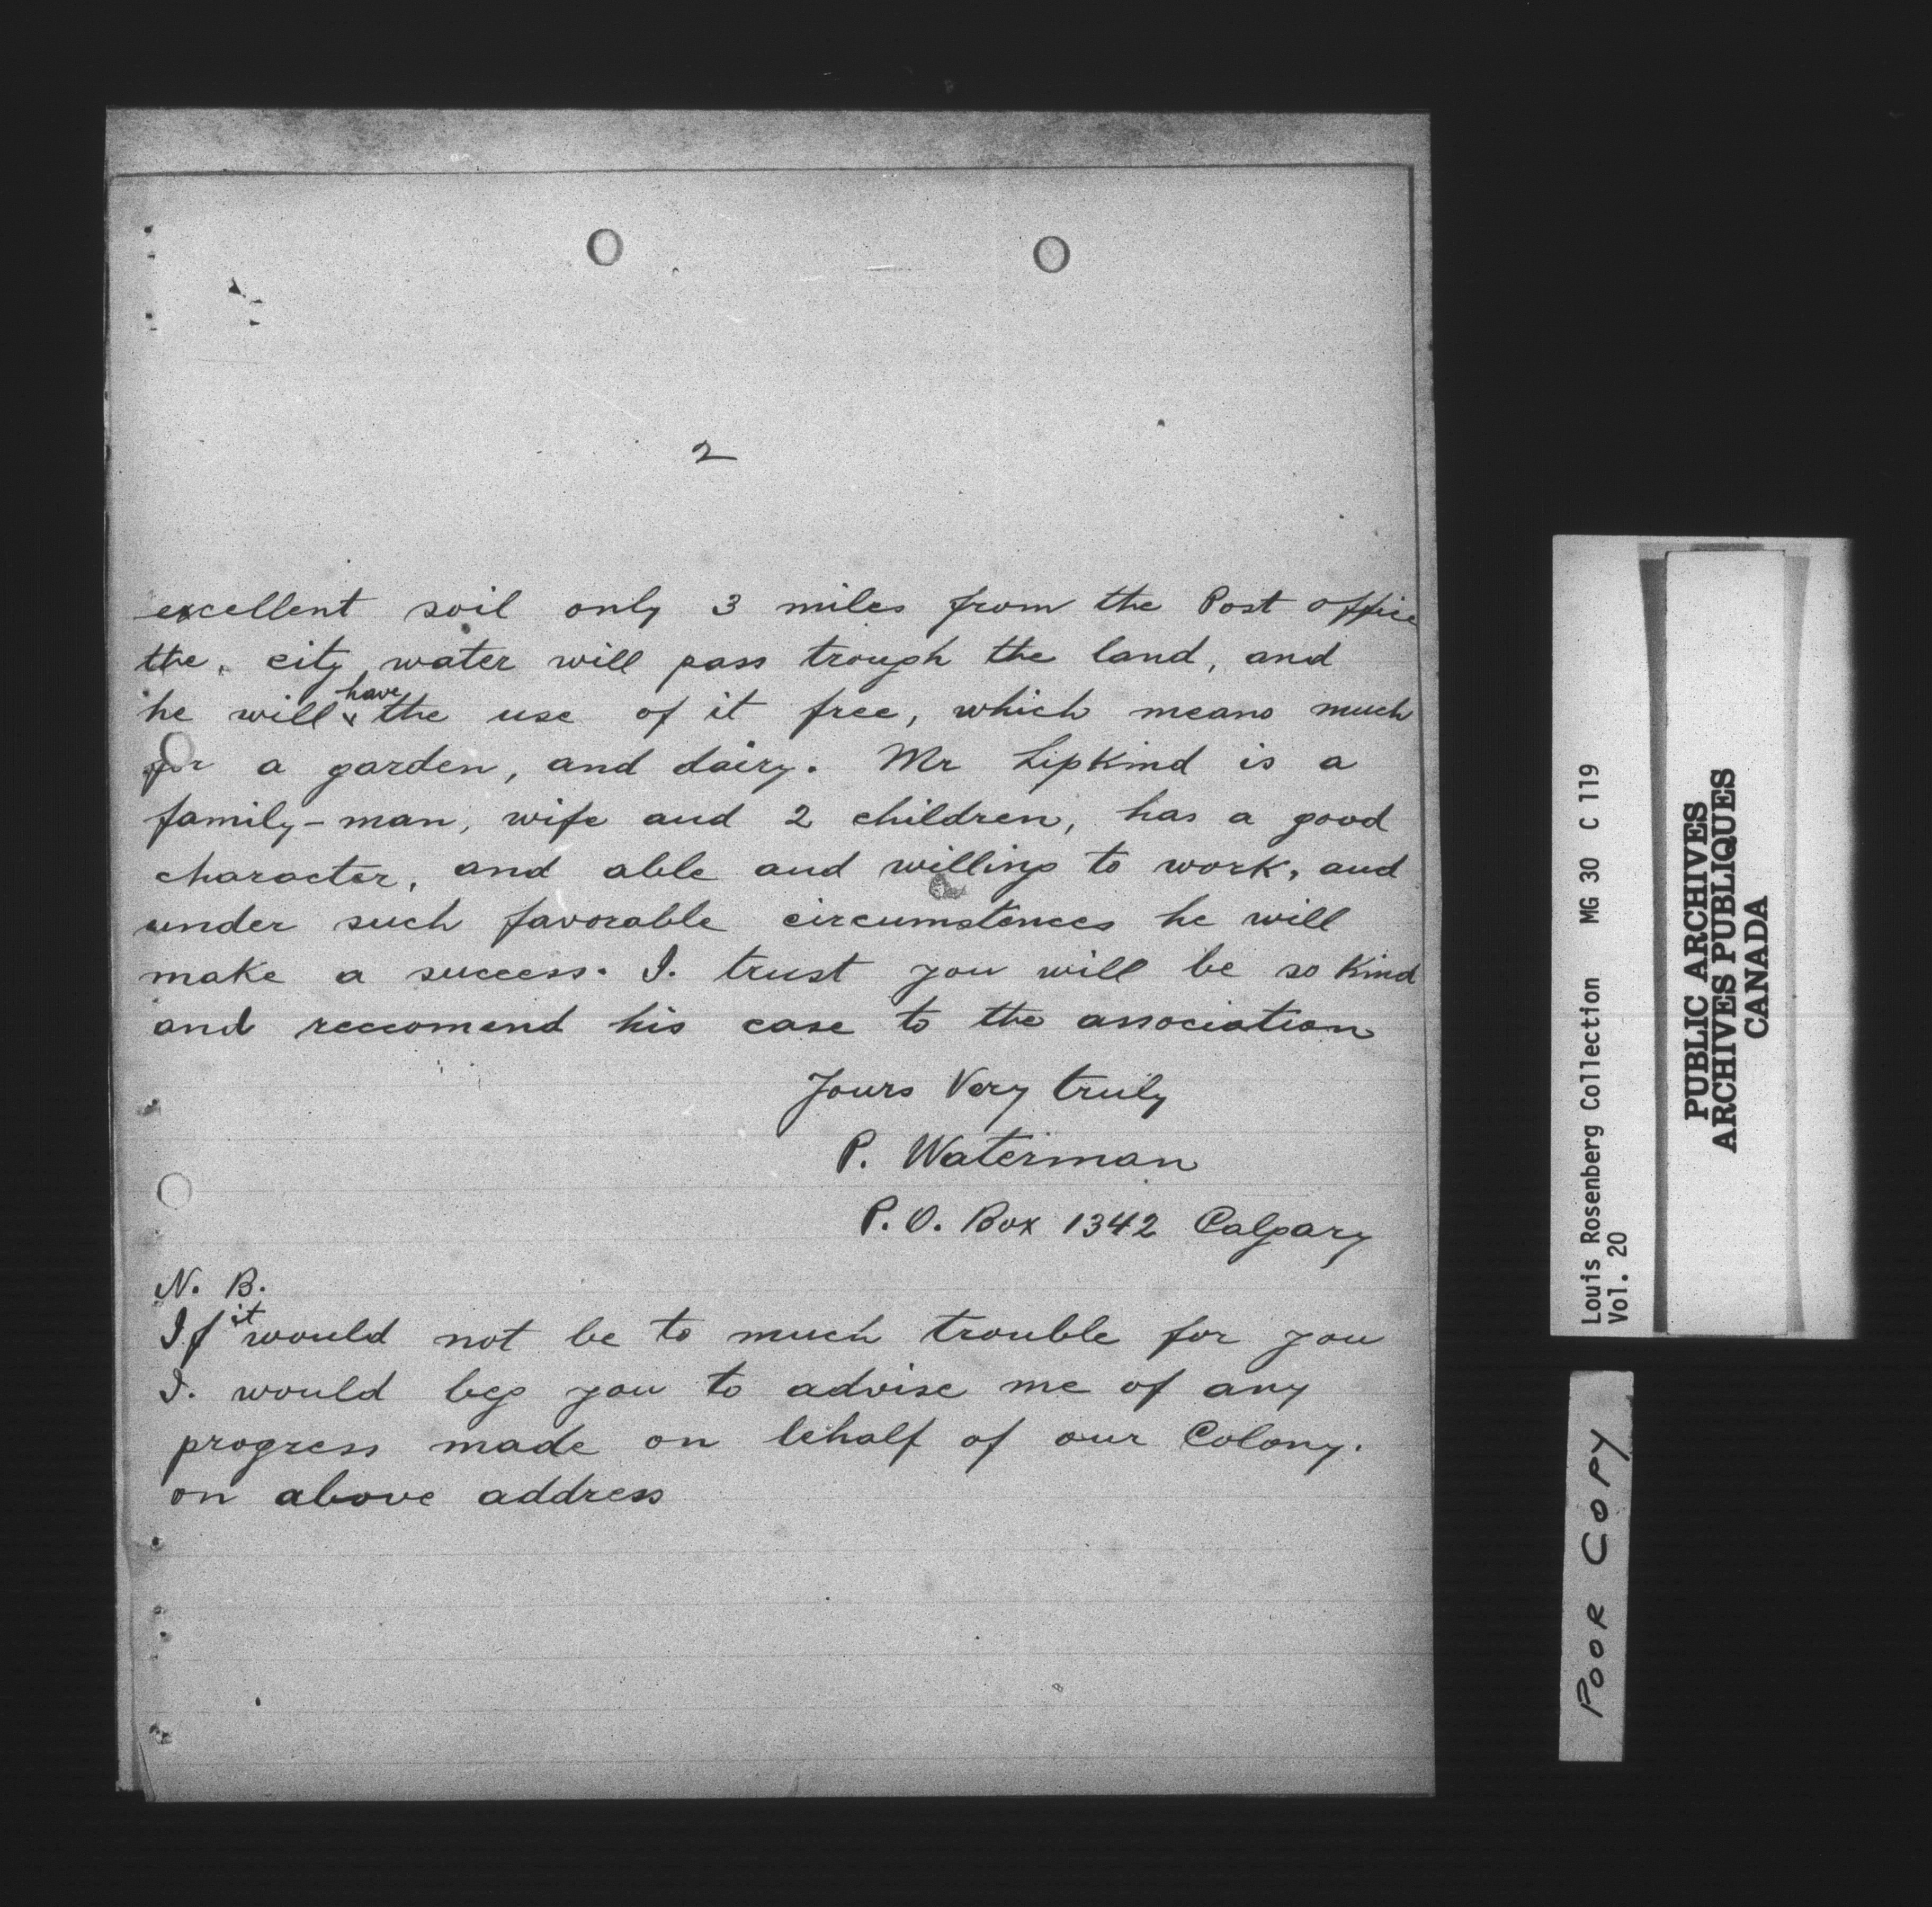 2
excellent soil only 3 miles from the Post office
the, city water will pass trough the land, and
he will have the use of it free, which means much
for a garden, and dairy. Mr Lipkind is a
family-man, wife and 2 children, has a good
character, and able and willing to work, and
under such favorable circumstences he will
make a success. I. trust you will be so kind
and reccomend his case to the association
Yours Very truly
P. Waterman
P.O. Box 1342 Calgary
N. B.
If it would not be to much trouble for you
I. would beg you to advise me of any
progress made on behalf of our Colony.
on above address
Louis Rosenberg Collection MG 30 C 119
Vol. 20
PUBLIC ARCHIVES
ARCHIVES PUBLIQUES
CANADA
POOR COPY